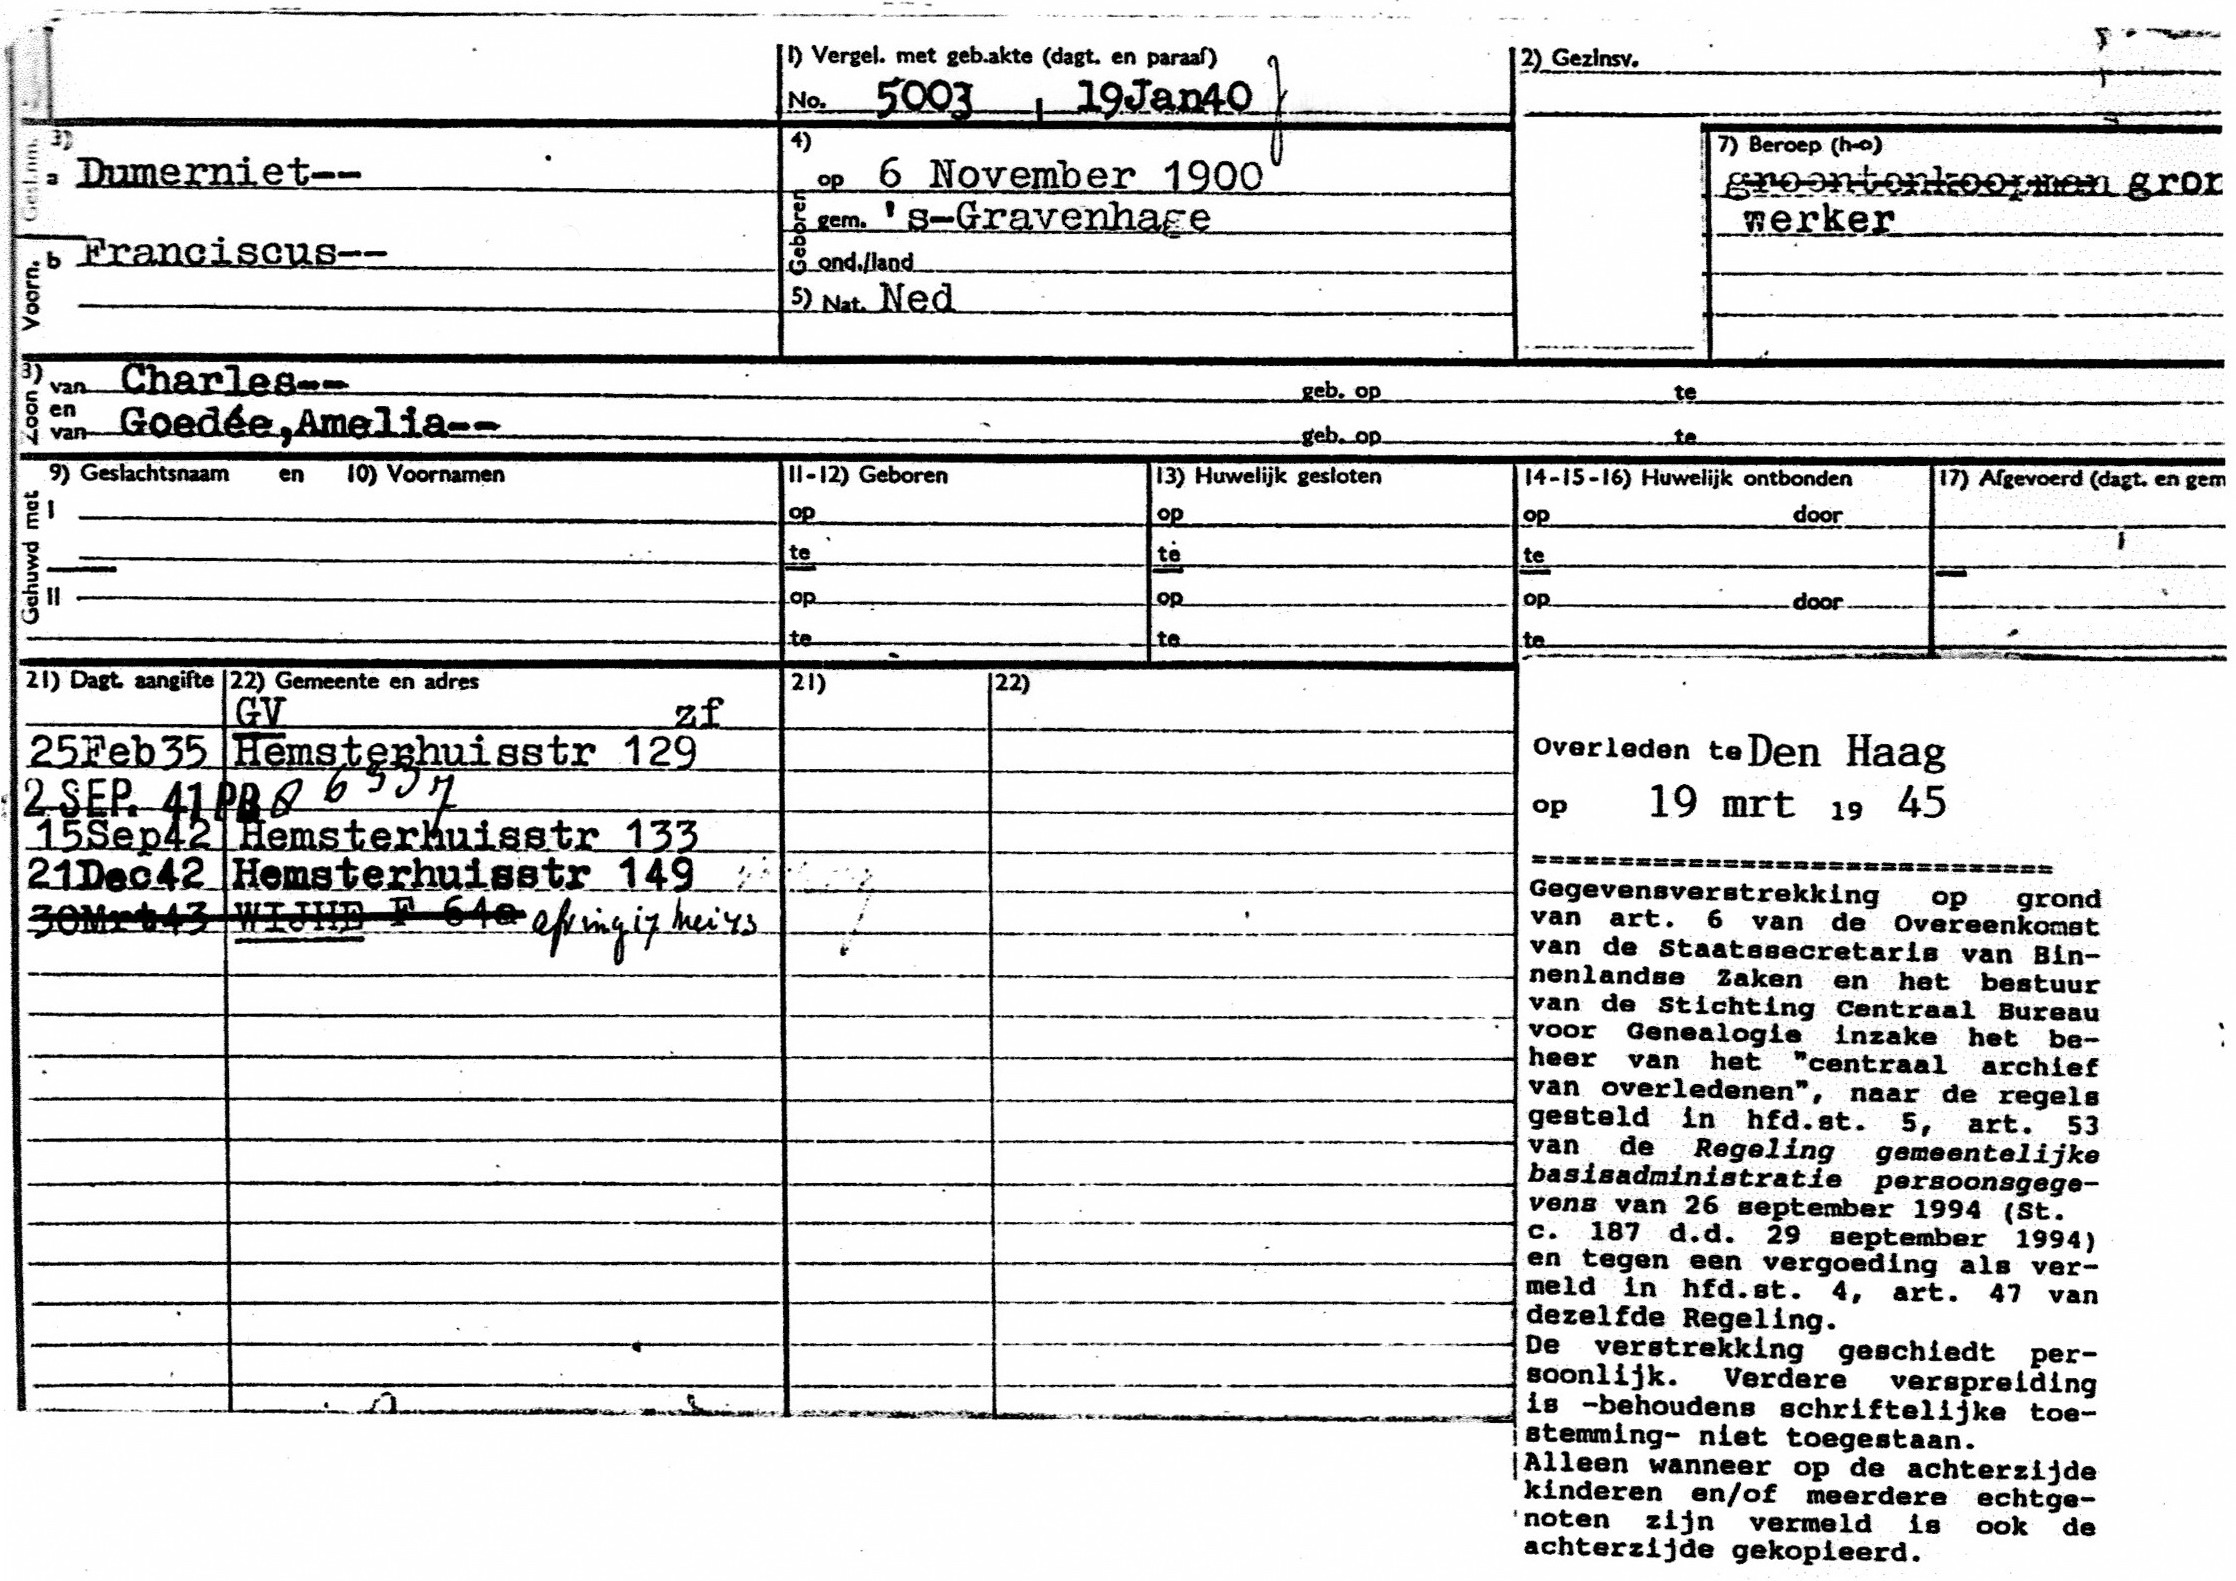 1) Vergel. met geb.akte (dagt. en paraaf)
No. 5003 , 19Jan40
2) Gezinsv.
Gesl.nm.
3)
a Dumerniet--
Voorn.
b Franciscus--
4)
Geboren
op 6 November 1900
gem. 's-Gravenhage
ond./land
5) Nat. Ned
7) Beroep (h-o)
groentenkoopman gron
werker
3)
Zoon
van Charles--
geb. op te
en
van Goedée,Amelia--
geb. op te
Gehuwd met
9) Geslachtsnaam en 10) Voornamen
11-12) Geboren
13) Huwelijk gesloten
14-15-16) Huwelijk ontbonden
17) Afgevoerd (dagt. en gem
I
op
op
op door
te
te
te
II
op
op
op door
te
te
te
21) Dagt. aangifte
22) Gemeente en adres
21)
22)
GV zf
25Feb35 Hemsterhuisstr 129
2 SEP. 41 PB
15Sep42 Hemsterhuisstr 133
21Dec42 Hemsterhuisstr 149
30Mrt43 WIJHE F 64a 17 Mei 43
Overleden te Den Haag
op 19 mrt 19 45
==============================
Gegevensverstrekking op grond
van art. 6 van de Overeenkomst
van de Staatssecretaris van Bin-
nenlandse Zaken en het bestuur
van de Stichting Centraal Bureau
voor Genealogie inzake het be-
heer van het "centraal archief
van overledenen", naar de regels
gesteld in hfd.st. 5, art. 53
van de Regeling gemeentelijke
basisadministratie persoonsgege-
vens van 26 september 1994 (St.
c. 187 d.d. 29 september 1994)
en tegen een vergoeding als ver-
meld in hfd.st. 4, art. 47 van
dezelfde Regeling.
De verstrekking geschiedt per-
soonlijk. Verdere verspreiding
is -behoudens schriftelijke toe-
stemming- niet toegestaan.
Alleen wanneer op de achterzijde
kinderen en/of meerdere echtge-
noten zijn vermeld is ook de
achterzijde gekopieerd.